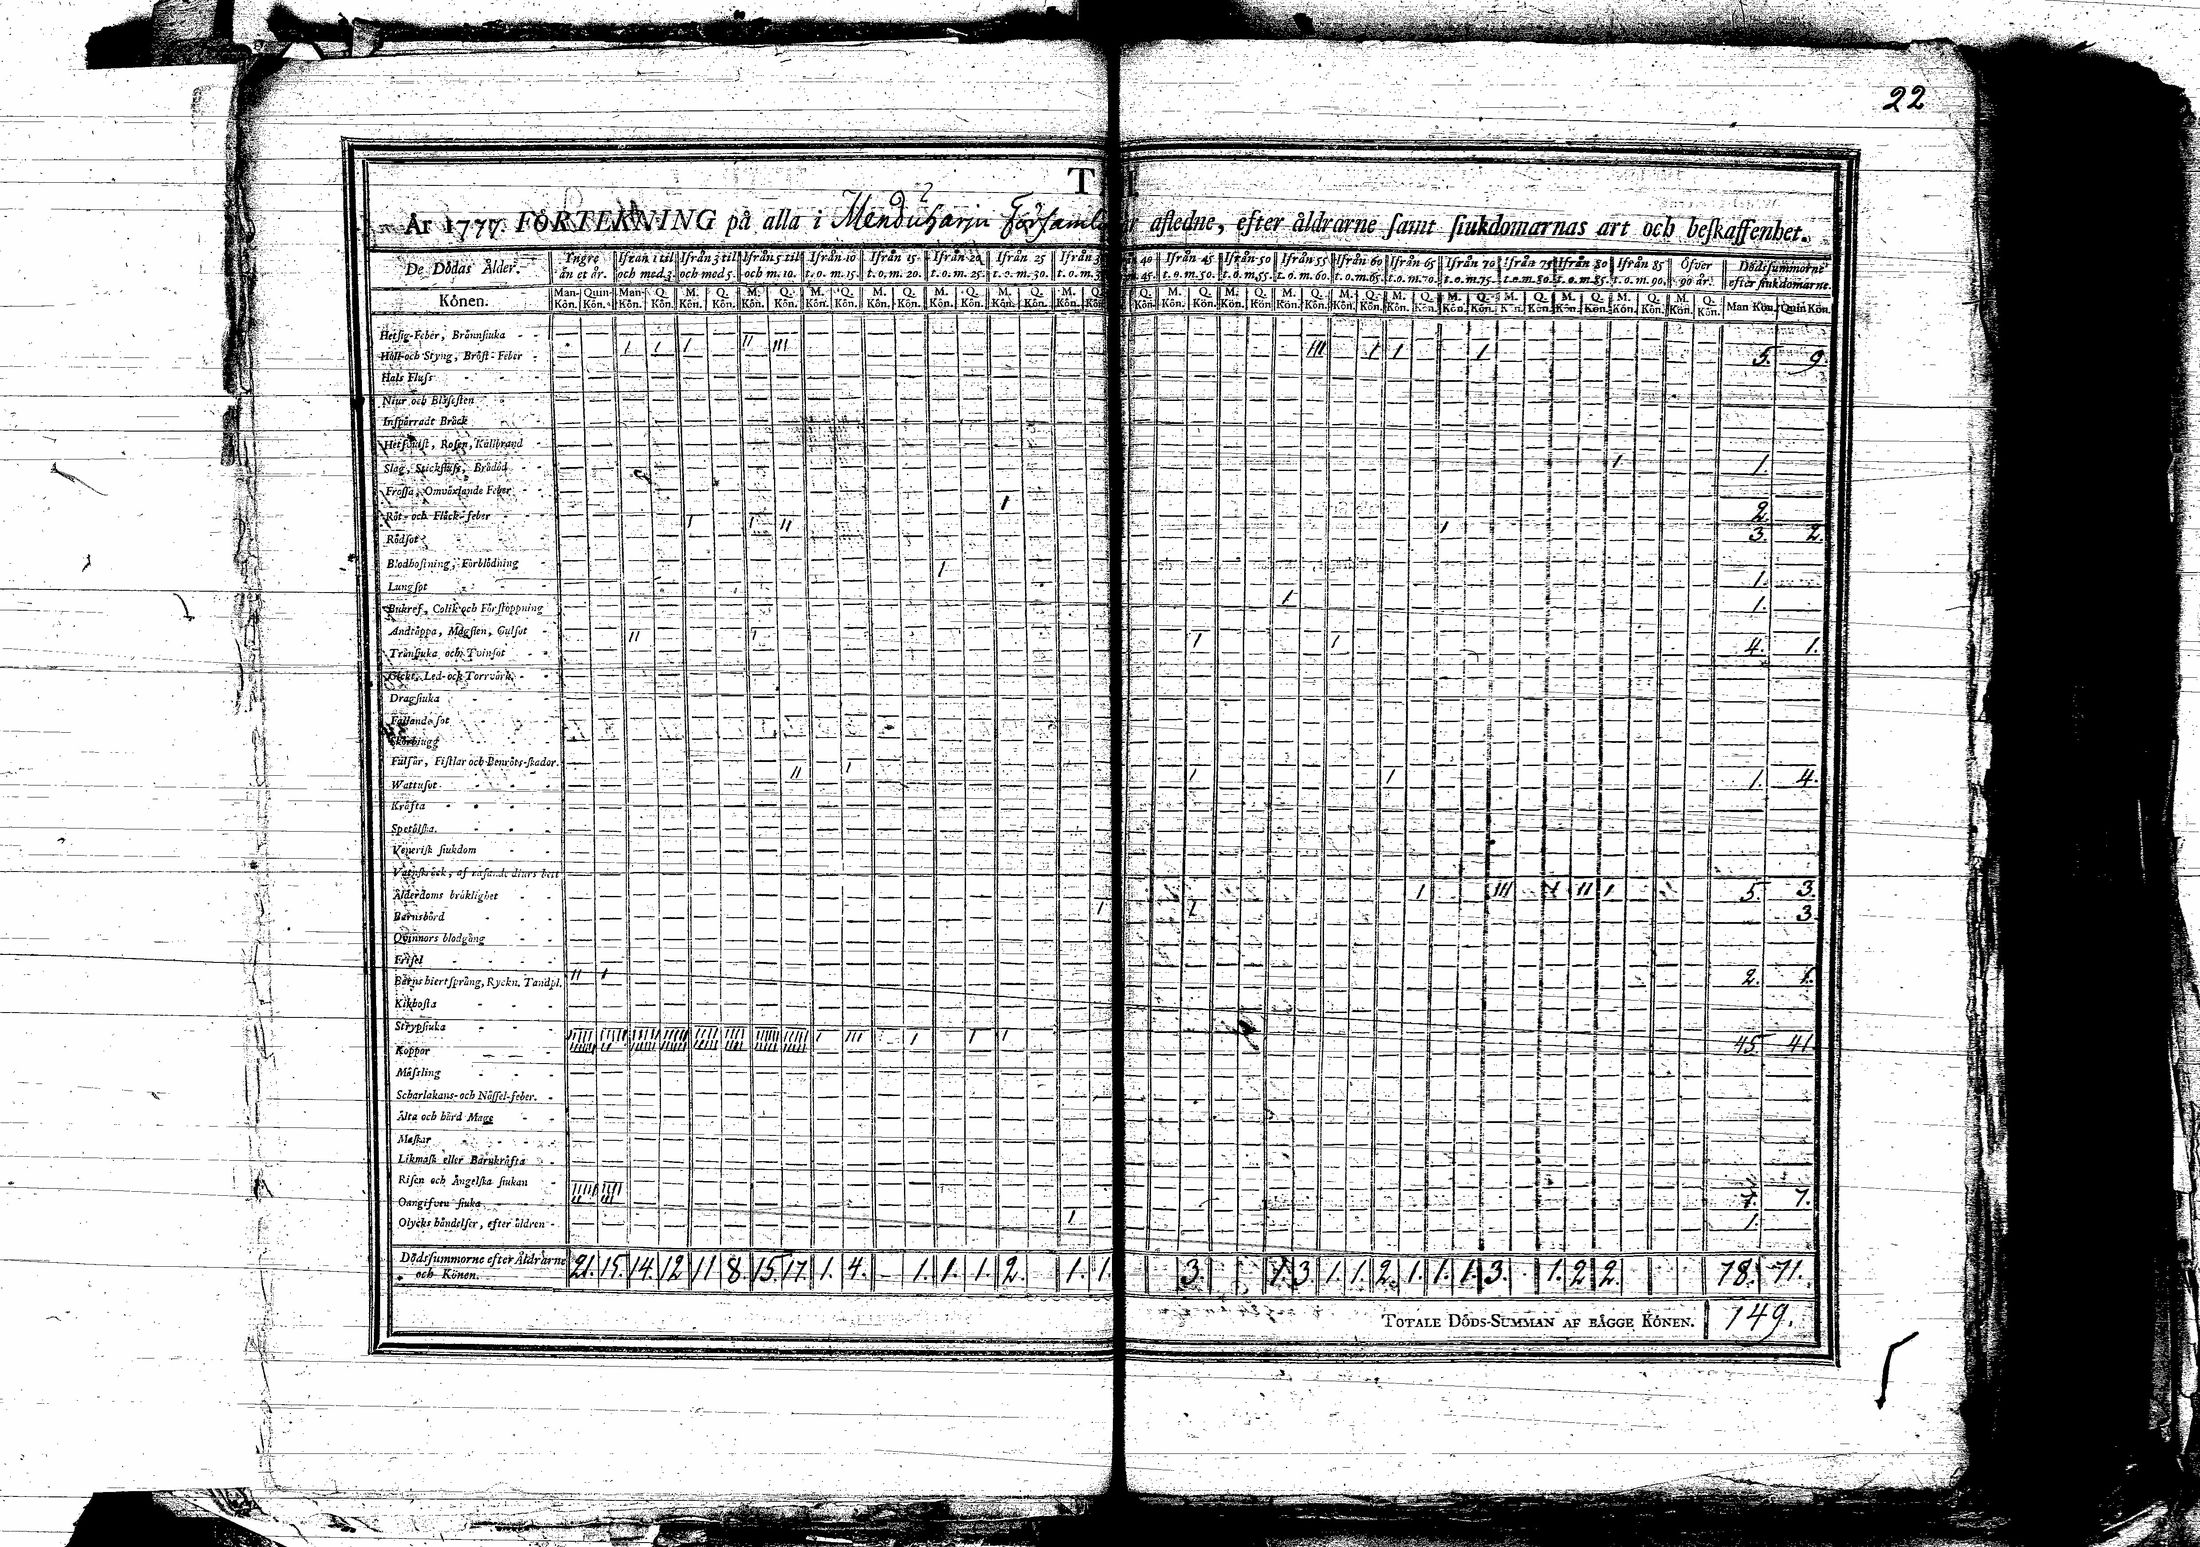 22
År 1777 FÖRTEKNING på alla i Menduharju afledne, efter åldrarne samt siukdomarnas art och beskaffenhet.
De Dödas Ålder. Yngre än et år. Ifrån 1 til och med 3. Ifrån 3 til och med 5. Ifrån 5 til och m. 10. Ifrån 10 t. o. m. 15. Ifrån 15 t. o. m. 20. Ifrån 20 t. o. m. 25. Ifrån 25 t. o. m. 30. Ifrån 45 t. o. m. 50. Ifrån 50 t. o. m. 55. Ifrån 55 t. o. m. 60. Ifrån 60 t. o. m. 65. Ifrån 65 t. o. m. 70. Ifrån 70 t. o. m. 75. Ifrån 75 t. o. m. 80. Ifrån 80 t. o. m. 85. Ifrån 85 t. o. m. 90. Öfver 90 år. Dödssummorne efter siukdomarne.
Könen. Man Kön. Quin Kön. Man Kön. Q. Kön. M. Kön. Q. Kön. M. Kön. Q. Kön. M. Kön. Q. Kön. M. Kön. Q. Kön. M. Kön. Q. Kön. M. Kön. Q. Kön. Man Kön. Quin Kön.
Hetsig-Feber, Brännsiuka
Håll- och Styng, Bröst-Feber 5. 9.
Hals Fluss
Niur och Blåsesten
Inspärradt Bråck
Hetsblåst, Rosen, Kallbrand
Slag, Stickfluss, Brådöd 1.
Frossa, Omväxlande Feber
Röt- och Fläck-feber 2.
Rödsot 3. 2.
Blodhostning, Förblödning
Lungsot 1.
Bukref, Colik och Förstoppning 1.
Andtäppa, Magsien, Gulsot
Trånsiuka och Tvinsot 4. 1.
Gickt, Led- och Torrvärk
Dragsiuka
Fallande sot
Skörbiugg
Fulsår, Fistlar och Benröts-skador.
Wattusot 1. 4.
Kräfta
Spetälska.
Venerisk siukdom
Vatnskräck, af rasande diurs bett
Ålderdoms bräklighet 5. 3.
Barnsbörd 3
Qvinnors blodgång
Frisel
Barns hiertsprång, Ryckn. Tandpl. 2. 1.
Kikhosta
Strypsiuka
Koppor 45. 41
Mässling
Scharlakans- och Nässel-feber.
Älta och hård Mage
Maskar
Likmask eller Barnkräfta
Risen och Ängelska siukan
Oangifven siuka 7. 7.
Olycks händelser, efter åldren 1.
Dödssummorne efter Åldrarne och Könen. 21. 15. 14. 12 11 8. 15. 17. 1. 4. 1. 1. 1. 2. 1. 1. 3. 1. 3. 1. 1. 2. 1. 1. 1. 3. 1. 2. 2. 78. 71.
TOTALE DÖDS-SUMMAN AF BÄGGE KÖNEN. 149.